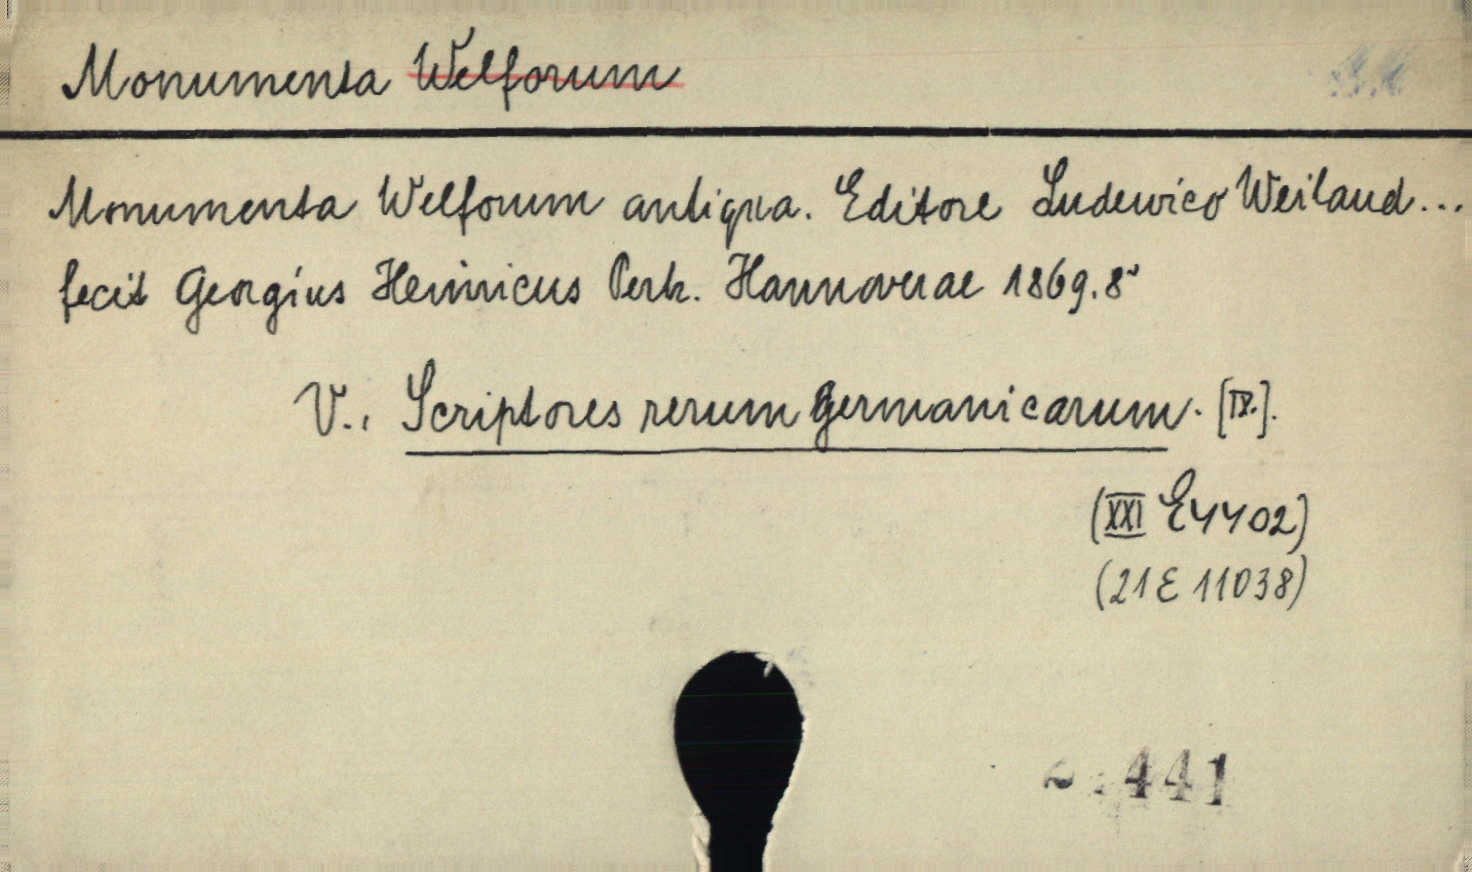 Monumenta Welforum
Monumenta Welforum antiqua. Editore Ludewico Weiland...
fecit Georgius Heinricus Pertz. Hannoverae 1869. 8°
V., Scriptores rerum germanicarum. [IV.].
(XXI E4402)
(21 E 11038)
441